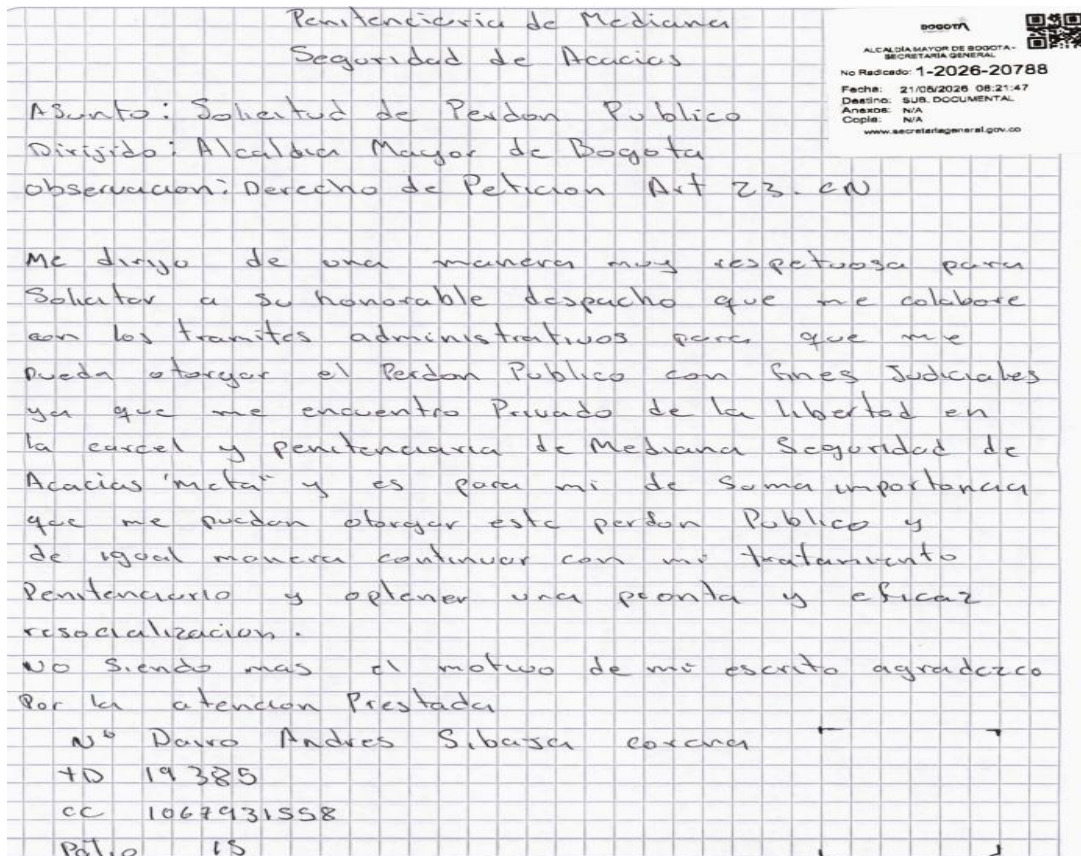 Penitenciaria de Mediana
Seguridad de Acacias
BOGOTÁ
ALCALDÍA MAYOR DE BOGOTA -
SECRETARÍA GENERAL
No Radicado: 1-2026-20788
Fecha: 21/05/2026 08:21:47
Destino: SUB. DOCUMENTAL
Anexos: N/A
Copia: N/A
www.secretariageneral.gov.co
Asunto: Solicitud de Perdon Publico
Dirijido: Alcaldia Mayor de Bogota
observacion: Derecho de Peticion Art 23. CN
Me dirijo de una manera muy respetuosa para
Solicitar a su honorable despacho que me colabore
con los tramites administrativos para que me
pueda otorgar el Perdon Publico con fines Judiciales
ya que me encuentro Privado de la libertad en
la carcel y penitenciaria de Mediana Seguridad de
Acacias "meta" y es para mi de Suma importancia
que me puedan otorgar este perdon Publico y
de igual manera continuar con mi tratamiento
Penitenciario y optener una pronta y eficaz
resocializacion.
No Siendo mas el motivo de mi escrito agradezco
Por la atencion Prestada
Nº Dairo Andres Sibaja
TD 19385
CC 1067931558
Patio 15